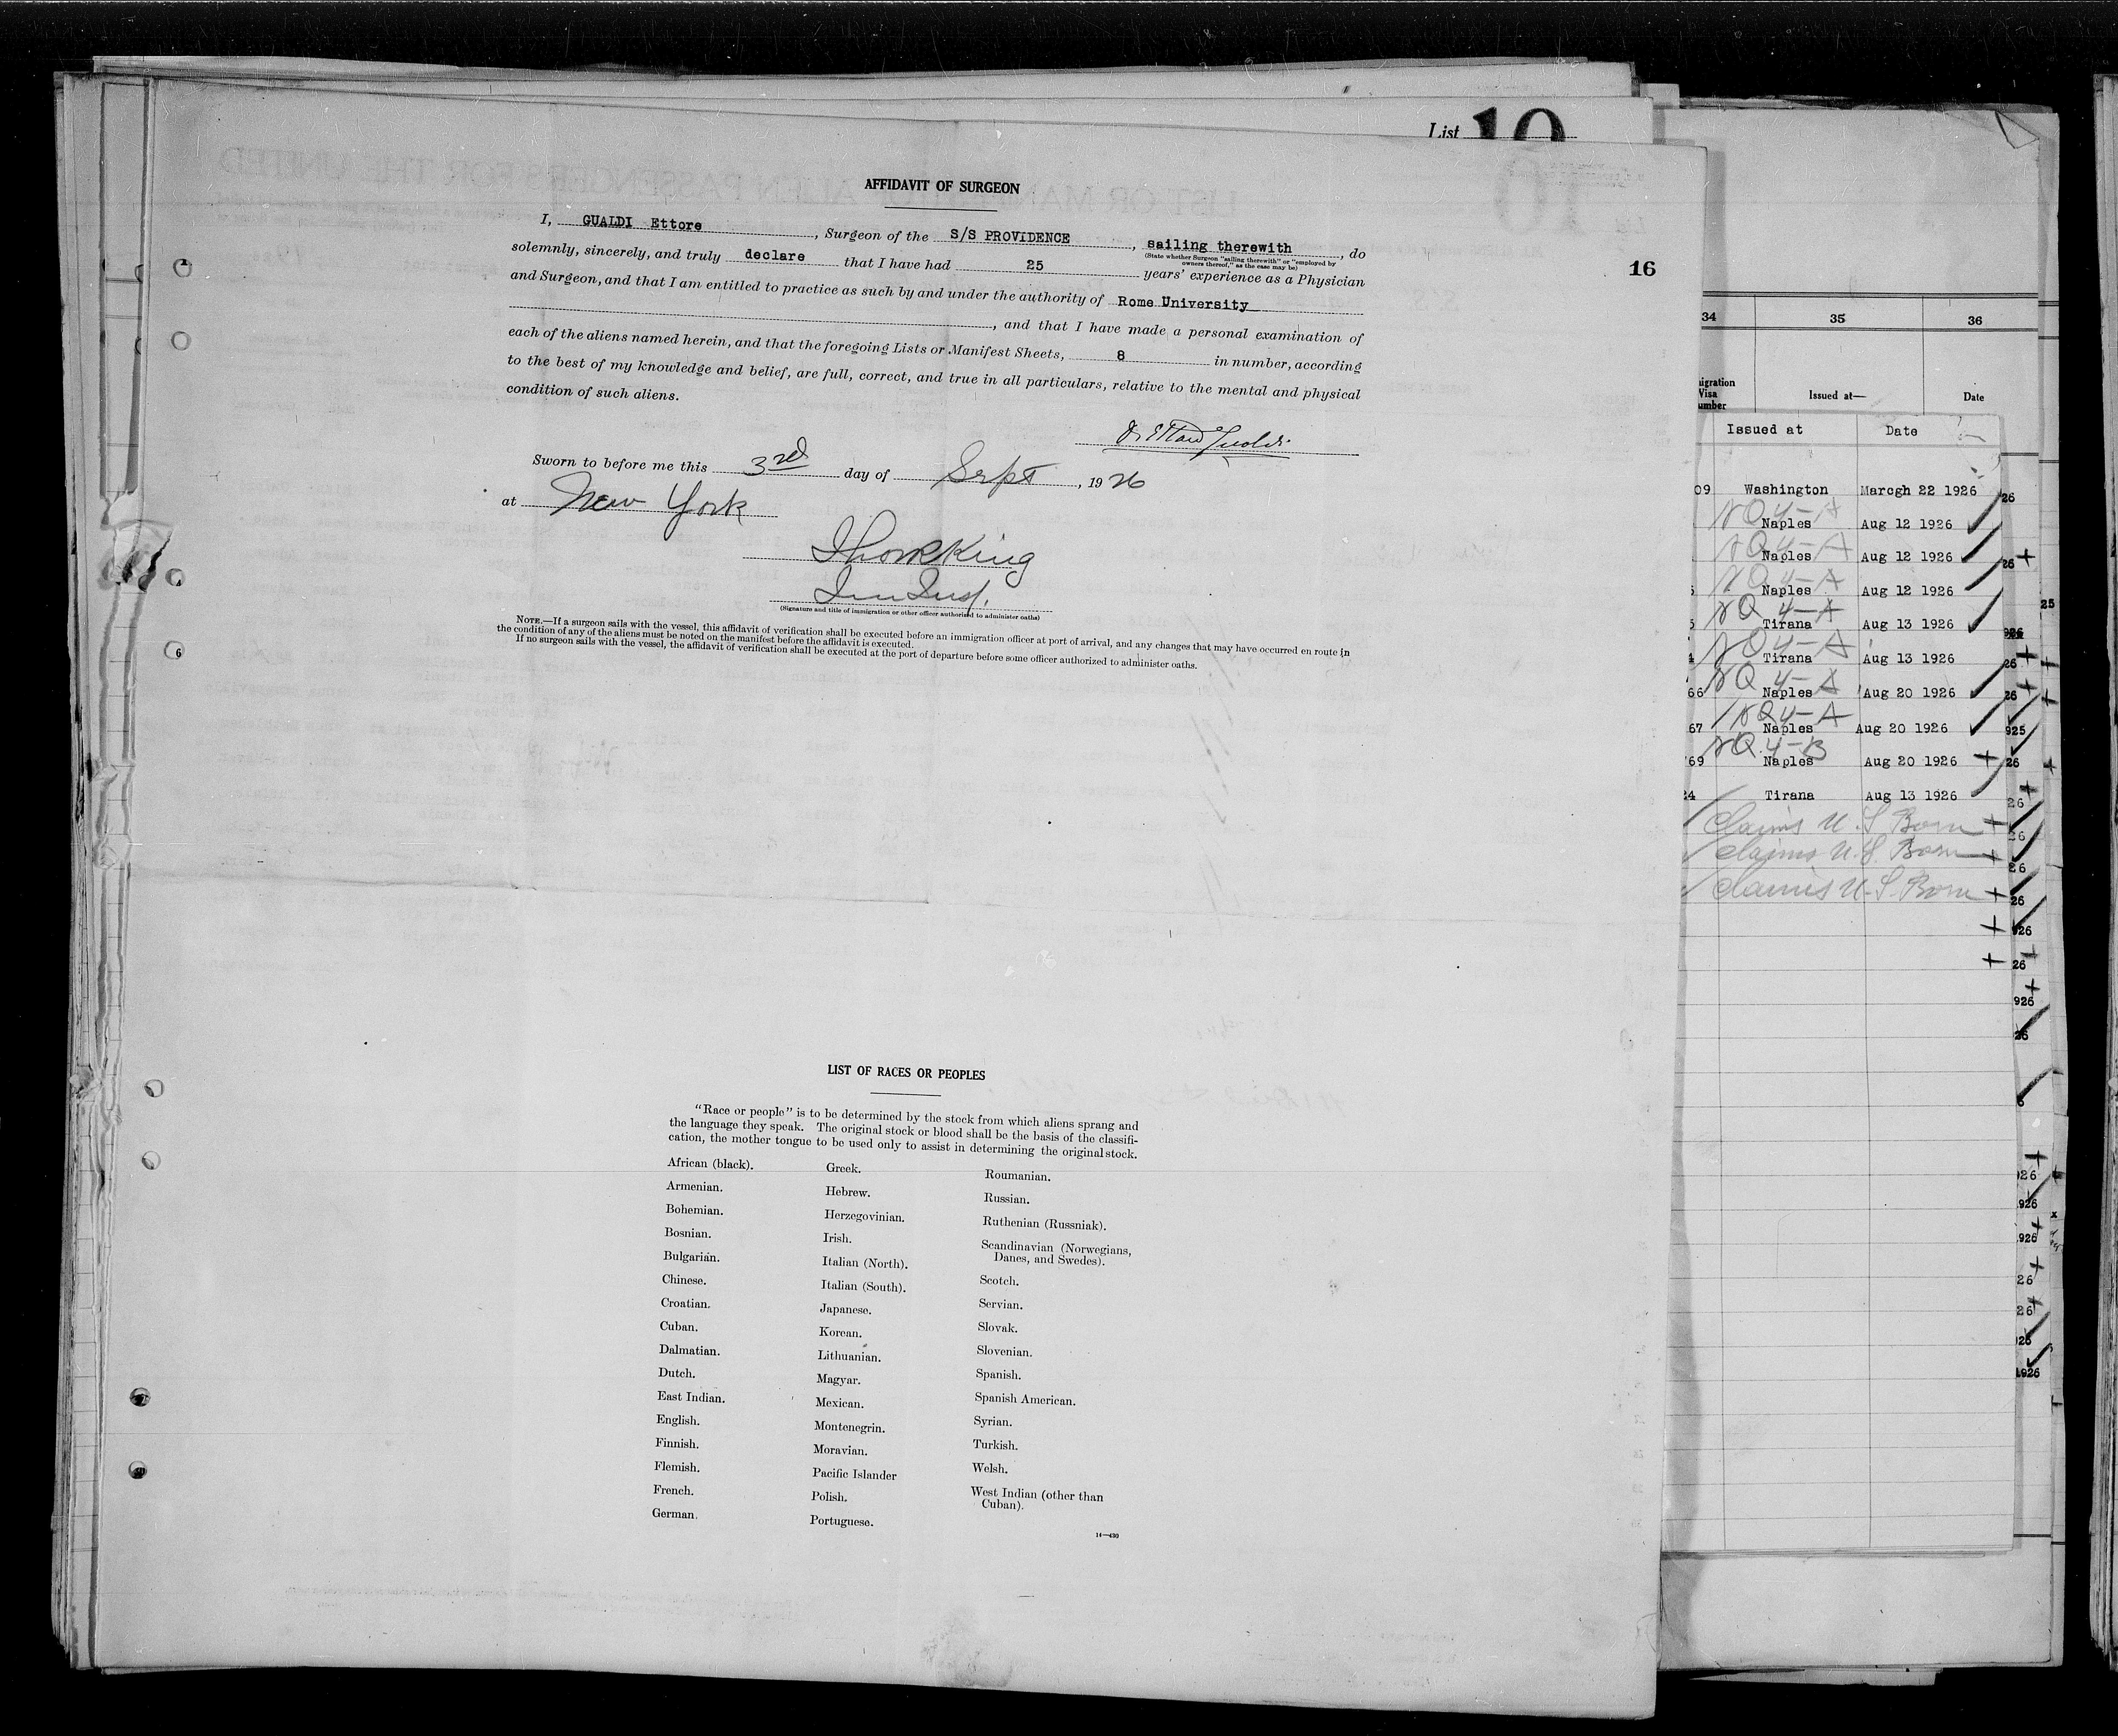 List 10
AFFIDAVIT OF SURGEON
I, GUALDI Ettore, Surgeon of the S/S PROVIDENCE, sailing therewith, do
(State whether Surgeon "sailing therewith" or "employed by
owners thereof," as the case may be)
solemnly, sincerely, and truly declare that I have had 25 years' experience as a Physician
and Surgeon, and that I am entitled to practice as such by and under the authority of Rome University
, and that I have made a personal examination of
each of the aliens named herein, and that the foregoing Lists or Manifest Sheets, 8 in number, according
to the best of my knowledge and belief, are full, correct, and true in all particulars, relative to the mental and physical
condition of such aliens.
Sworn to before me this 3rd day of Sept, 1926
at New York
King
(Signature and title of immigration or other officer authorized to administer oaths)
NOTE.—If a surgeon sails with the vessel, this affidavit of verification shall be executed before an immigration officer at port of arrival, and any changes that may have occurred en route in
the condition of any of the aliens must be noted on the manifest before the affidavit is executed.
If no surgeon sails with the vessel, the affidavit of verification shall be executed at the port of departure before some officer authorized to administer oaths.
LIST OF RACES OR PEOPLES
"Race or people" is to be determined by the stock from which aliens sprang and
the language they speak. The original stock or blood shall be the basis of the classifi-
cation, the mother tongue to be used only to assist in determining the original stock.
African (black).
Armenian.
Bohemian.
Bosnian.
Bulgarian.
Chinese.
Croatian.
Cuban.
Dalmatian.
Dutch.
East Indian.
English.
Finnish.
Flemish.
French.
German.
Greek.
Hebrew.
Herzegovinian.
Irish.
Italian (North).
Italian (South).
Japanese.
Korean.
Lithuanian.
Magyar.
Mexican.
Montenegrin.
Moravian.
Pacific Islander
Polish.
Portuguese.
Roumanian.
Russian.
Ruthenian (Russniak).
Scandinavian (Norwegians,
Danes, and Swedes).
Scotch.
Servian.
Slovak.
Slovenian.
Spanish.
Spanish American.
Syrian.
Turkish.
Welsh.
West Indian (other than
Cuban).
14—430
16
34 35 36
Visa
Issued at— Date
Issued at Date
09 Washington Marcgh 22 1926
NQ 4-A
Naples Aug 12 1926
NQ 4-A
Naples Aug 12 1926
NQ 4-A
Naples Aug 12 1926
NQ 4-A
Tirana Aug 13 1926
NQ 4-A
Tirana Aug 13 1926
NQ 4-A
66 Naples Aug 20 1926
NQ 4-A
67 Naples Aug 20 1926
NQ 4-B
69 Naples Aug 20 1926
24 Tirana Aug 13 1926
Claims U.S. Born
Claims U.S. Born
Claims U.S. Born